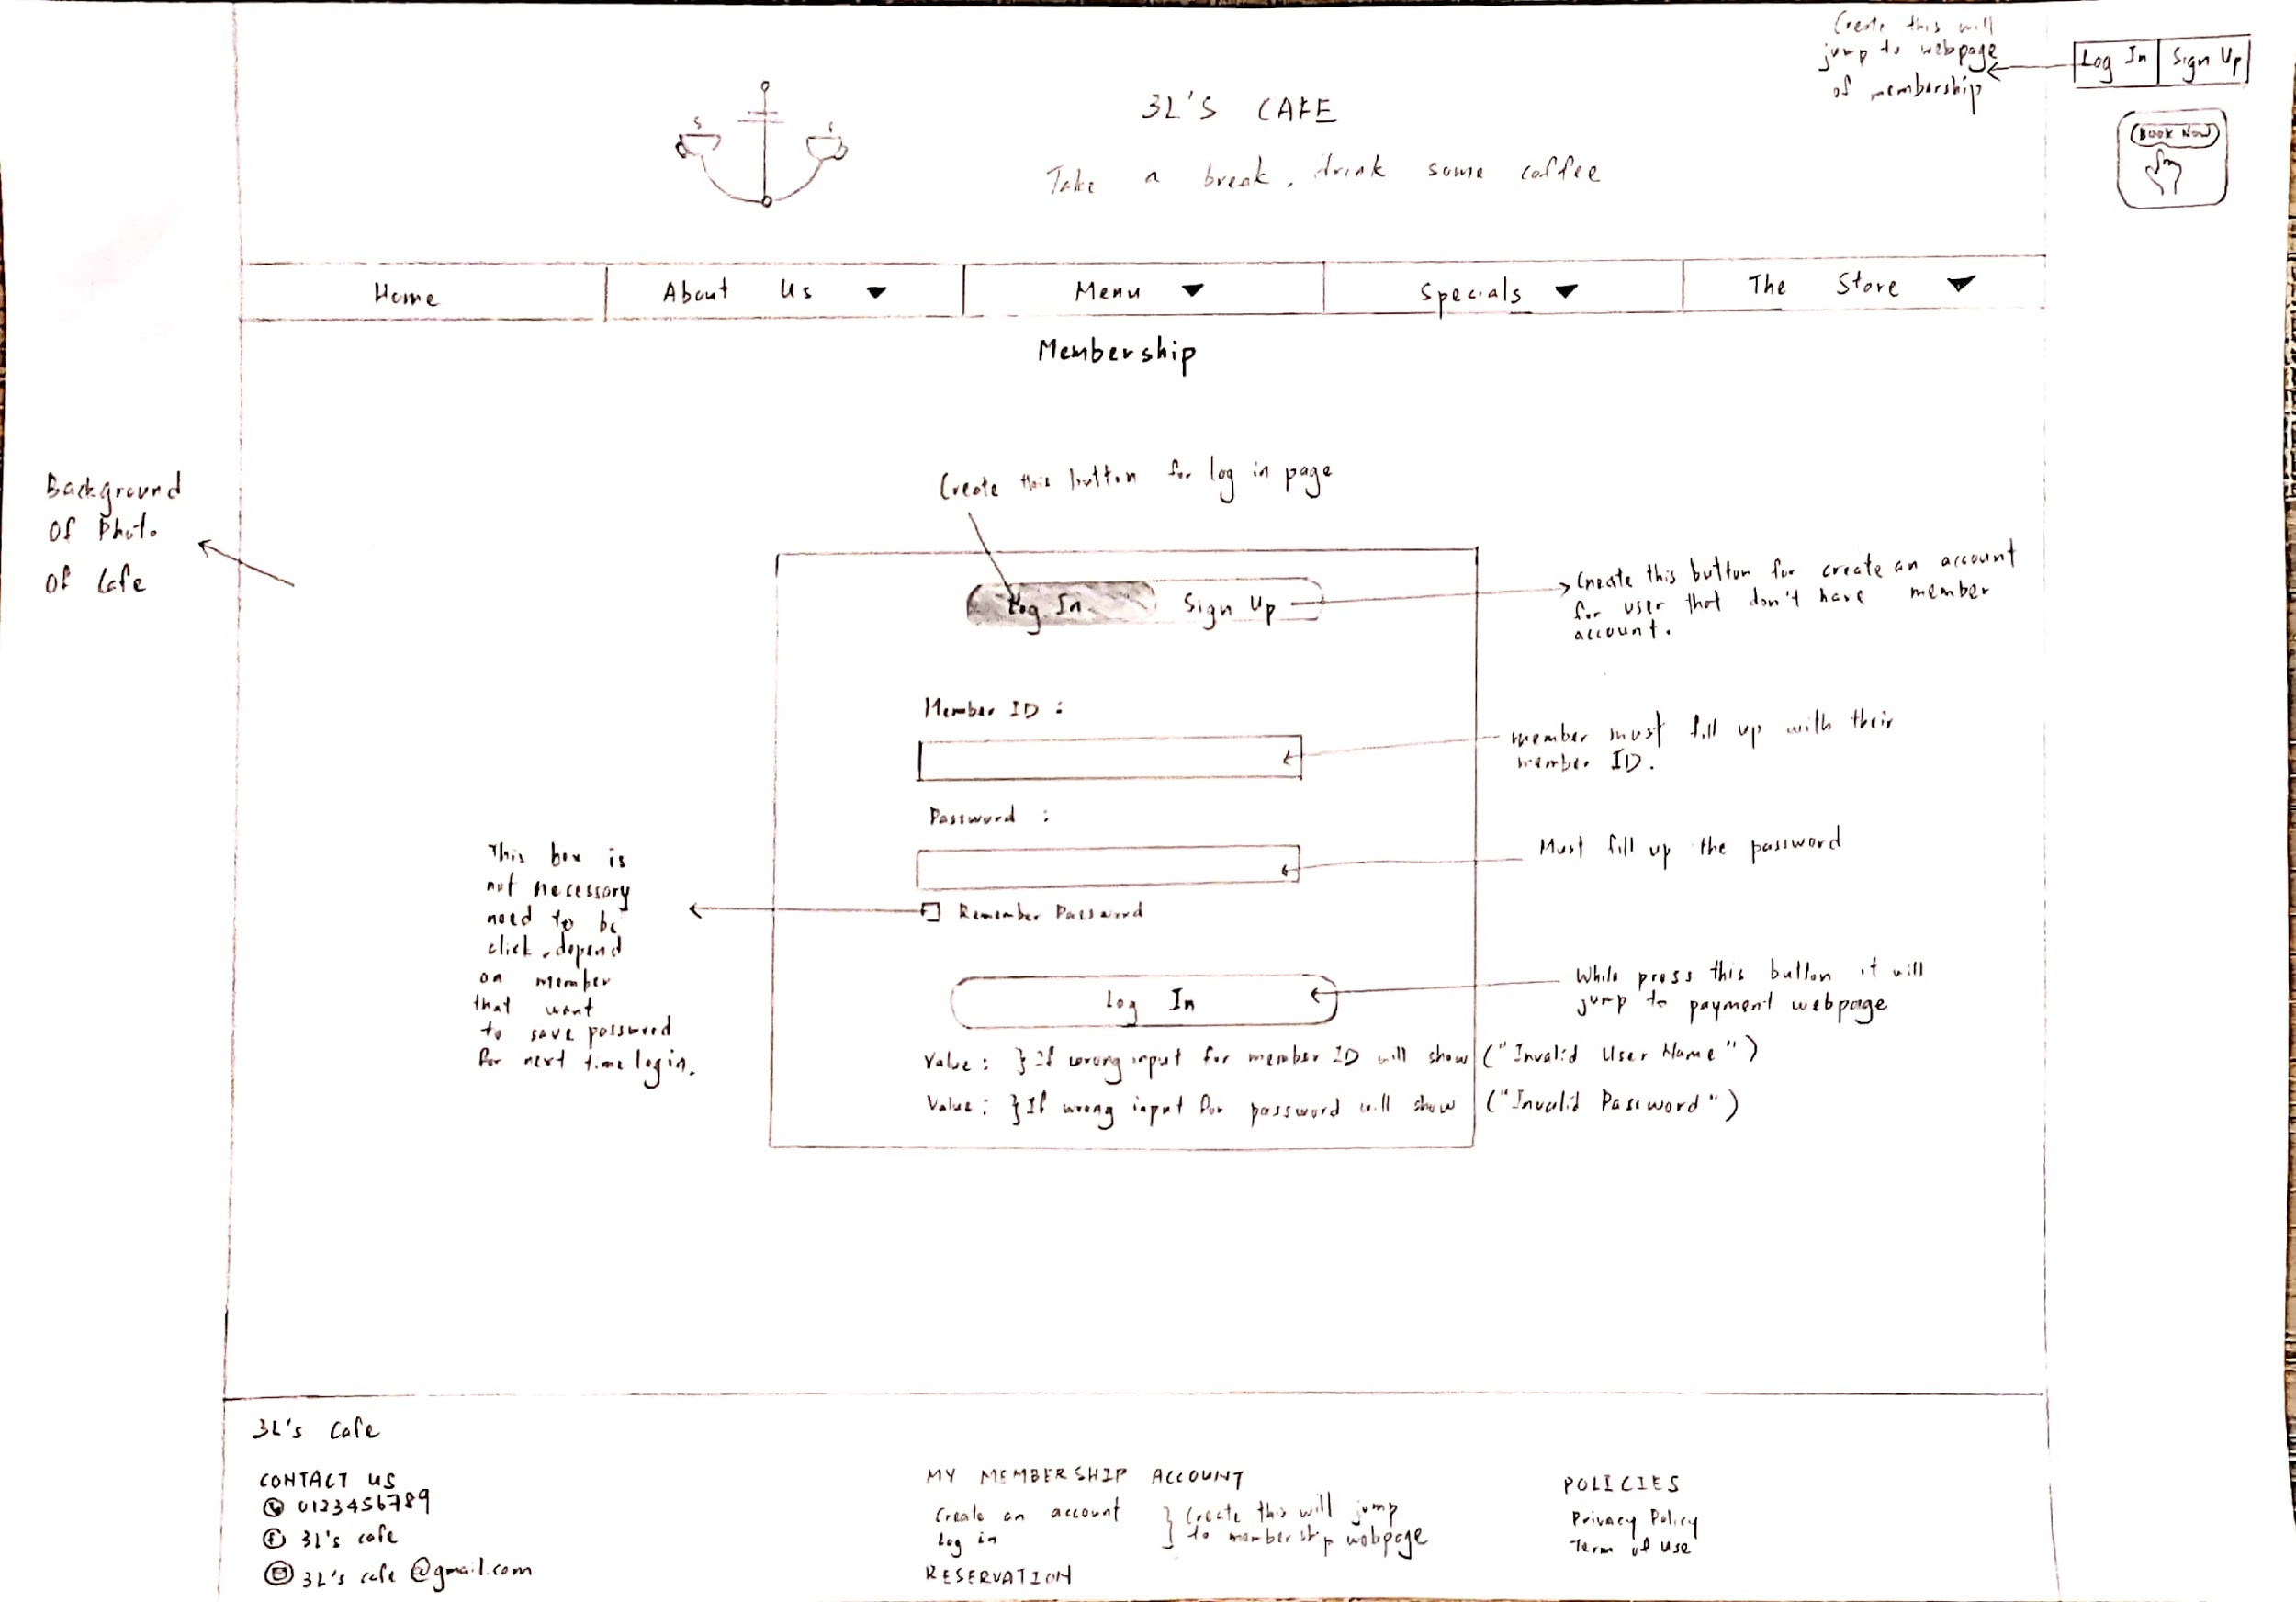 Create this will
jump to webpage
of membership
Log In
Sign Up
BOOK NOW
3L'S CAFE
Take a break, drink some coffee
Home
About Us
Menu
Specials
The Store
Membership
Background
Of Photo
Of Cafe
Create this button for log in page
Log In
Sign Up
Create this button for create an account
for user that don't have member
account.
Member ID :
member must fill up with their
member ID.
Password :
Must fill up the password
This box is
not necessary
need to be
click, depend
on member
that want
to save password
for next time login.
Remember Password
Log In
While press this button it will
jump to payment webpage
Value : } If wrong input for member ID will show ("Invalid User Name")
Value : } If wrong input for password will show ("Invalid Password")
3L's Cafe
CONTACT US
0123456789
3L's cafe
3L's cafe @gmail.com
MY MEMBERSHIP ACCOUNT
Create an account
Log in
} Create this will jump
to membership webpage
RESERVATION
POLICIES
Privacy Policy
Term of Use